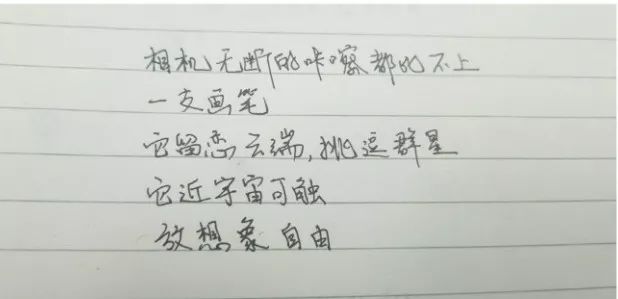 相机无断的咔嚓都比不上
一支画笔
它留恋云端,挑逗群星
它近宇宙可触
放想象自由